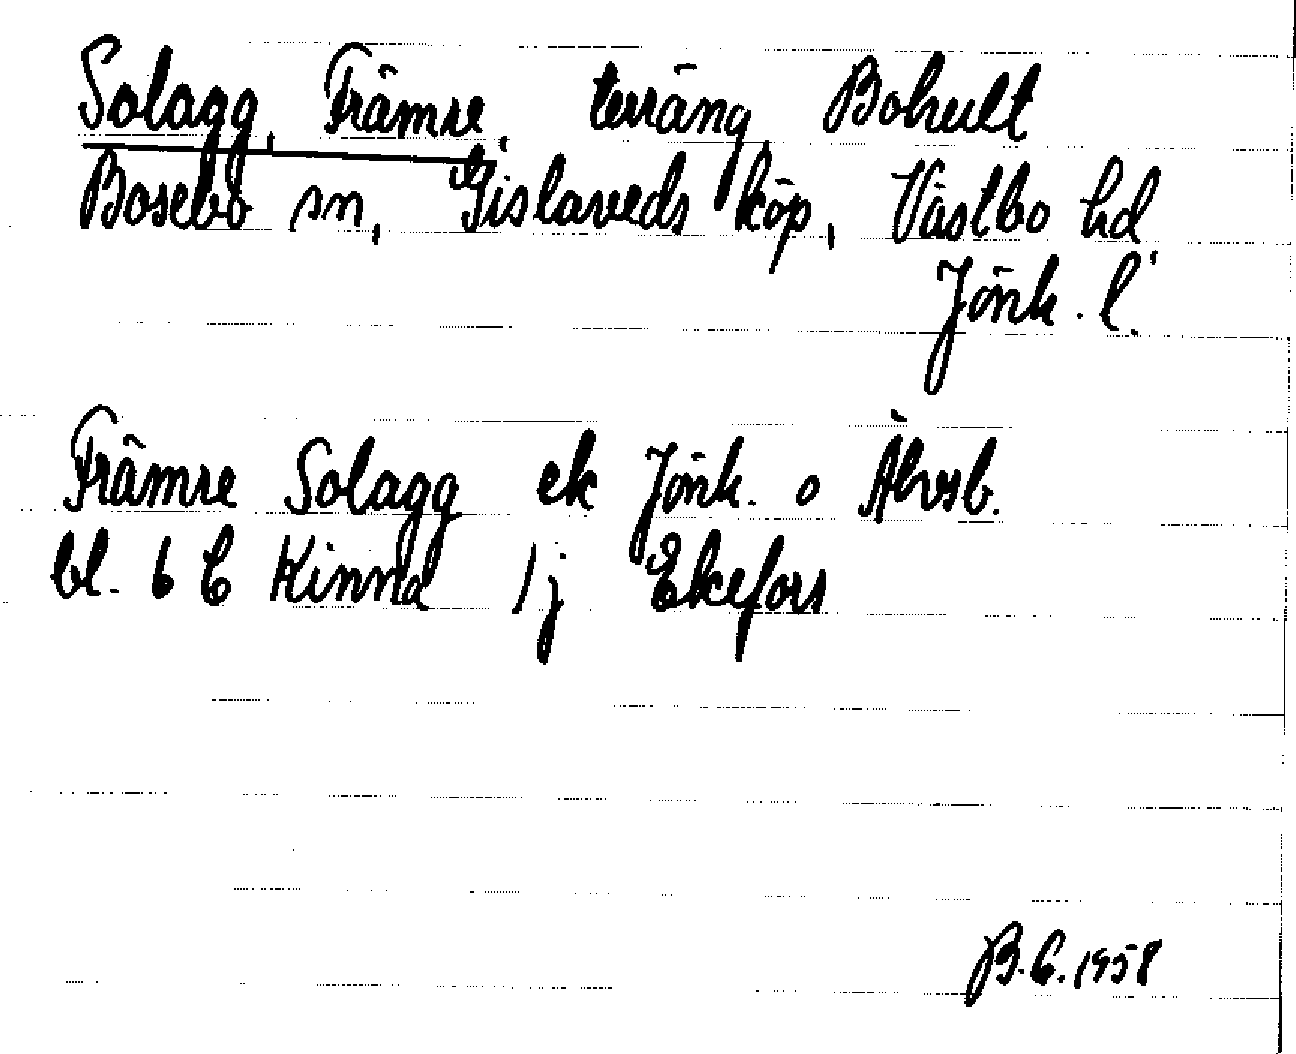 Solagg, Främre, terräng, Bohult
Bosebo sn, Gislaveds köp, Västbo hd
Jönk. l.
Främre Solagg ek Jönk. o Älvsb.
bl. 6 C Kinna 1j Ekefors
B.E. 1958